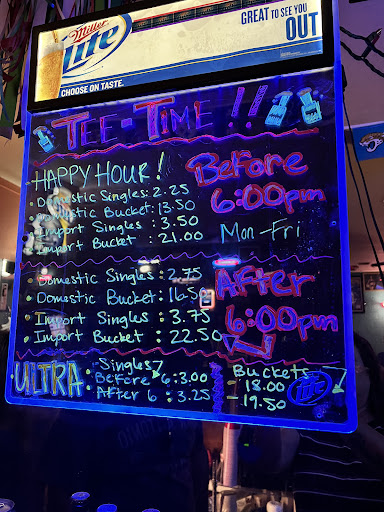 Miller
Lite
GREAT TO SEE YOU
OUT
CHOOSE ON TASTE.
TEE-TIME!!
HAPPY HOUR!
Before
6:00pm
Mon-Fri
• Domestic Singles: 2.25
• Domestic Bucket: 13.50
• Import Singles : 3.50
• Import Bucket : 21.00
After
6:00pm
• Domestic Singles: 2.75
• Domestic Bucket: 16.50
• Import Singles : 3.75
• Import Bucket : 22.50
ULTRA
• Singles
Buckets
• Before 6: 3.00
- 18.00
• After 6 : 3.25
- 19.50
Lite